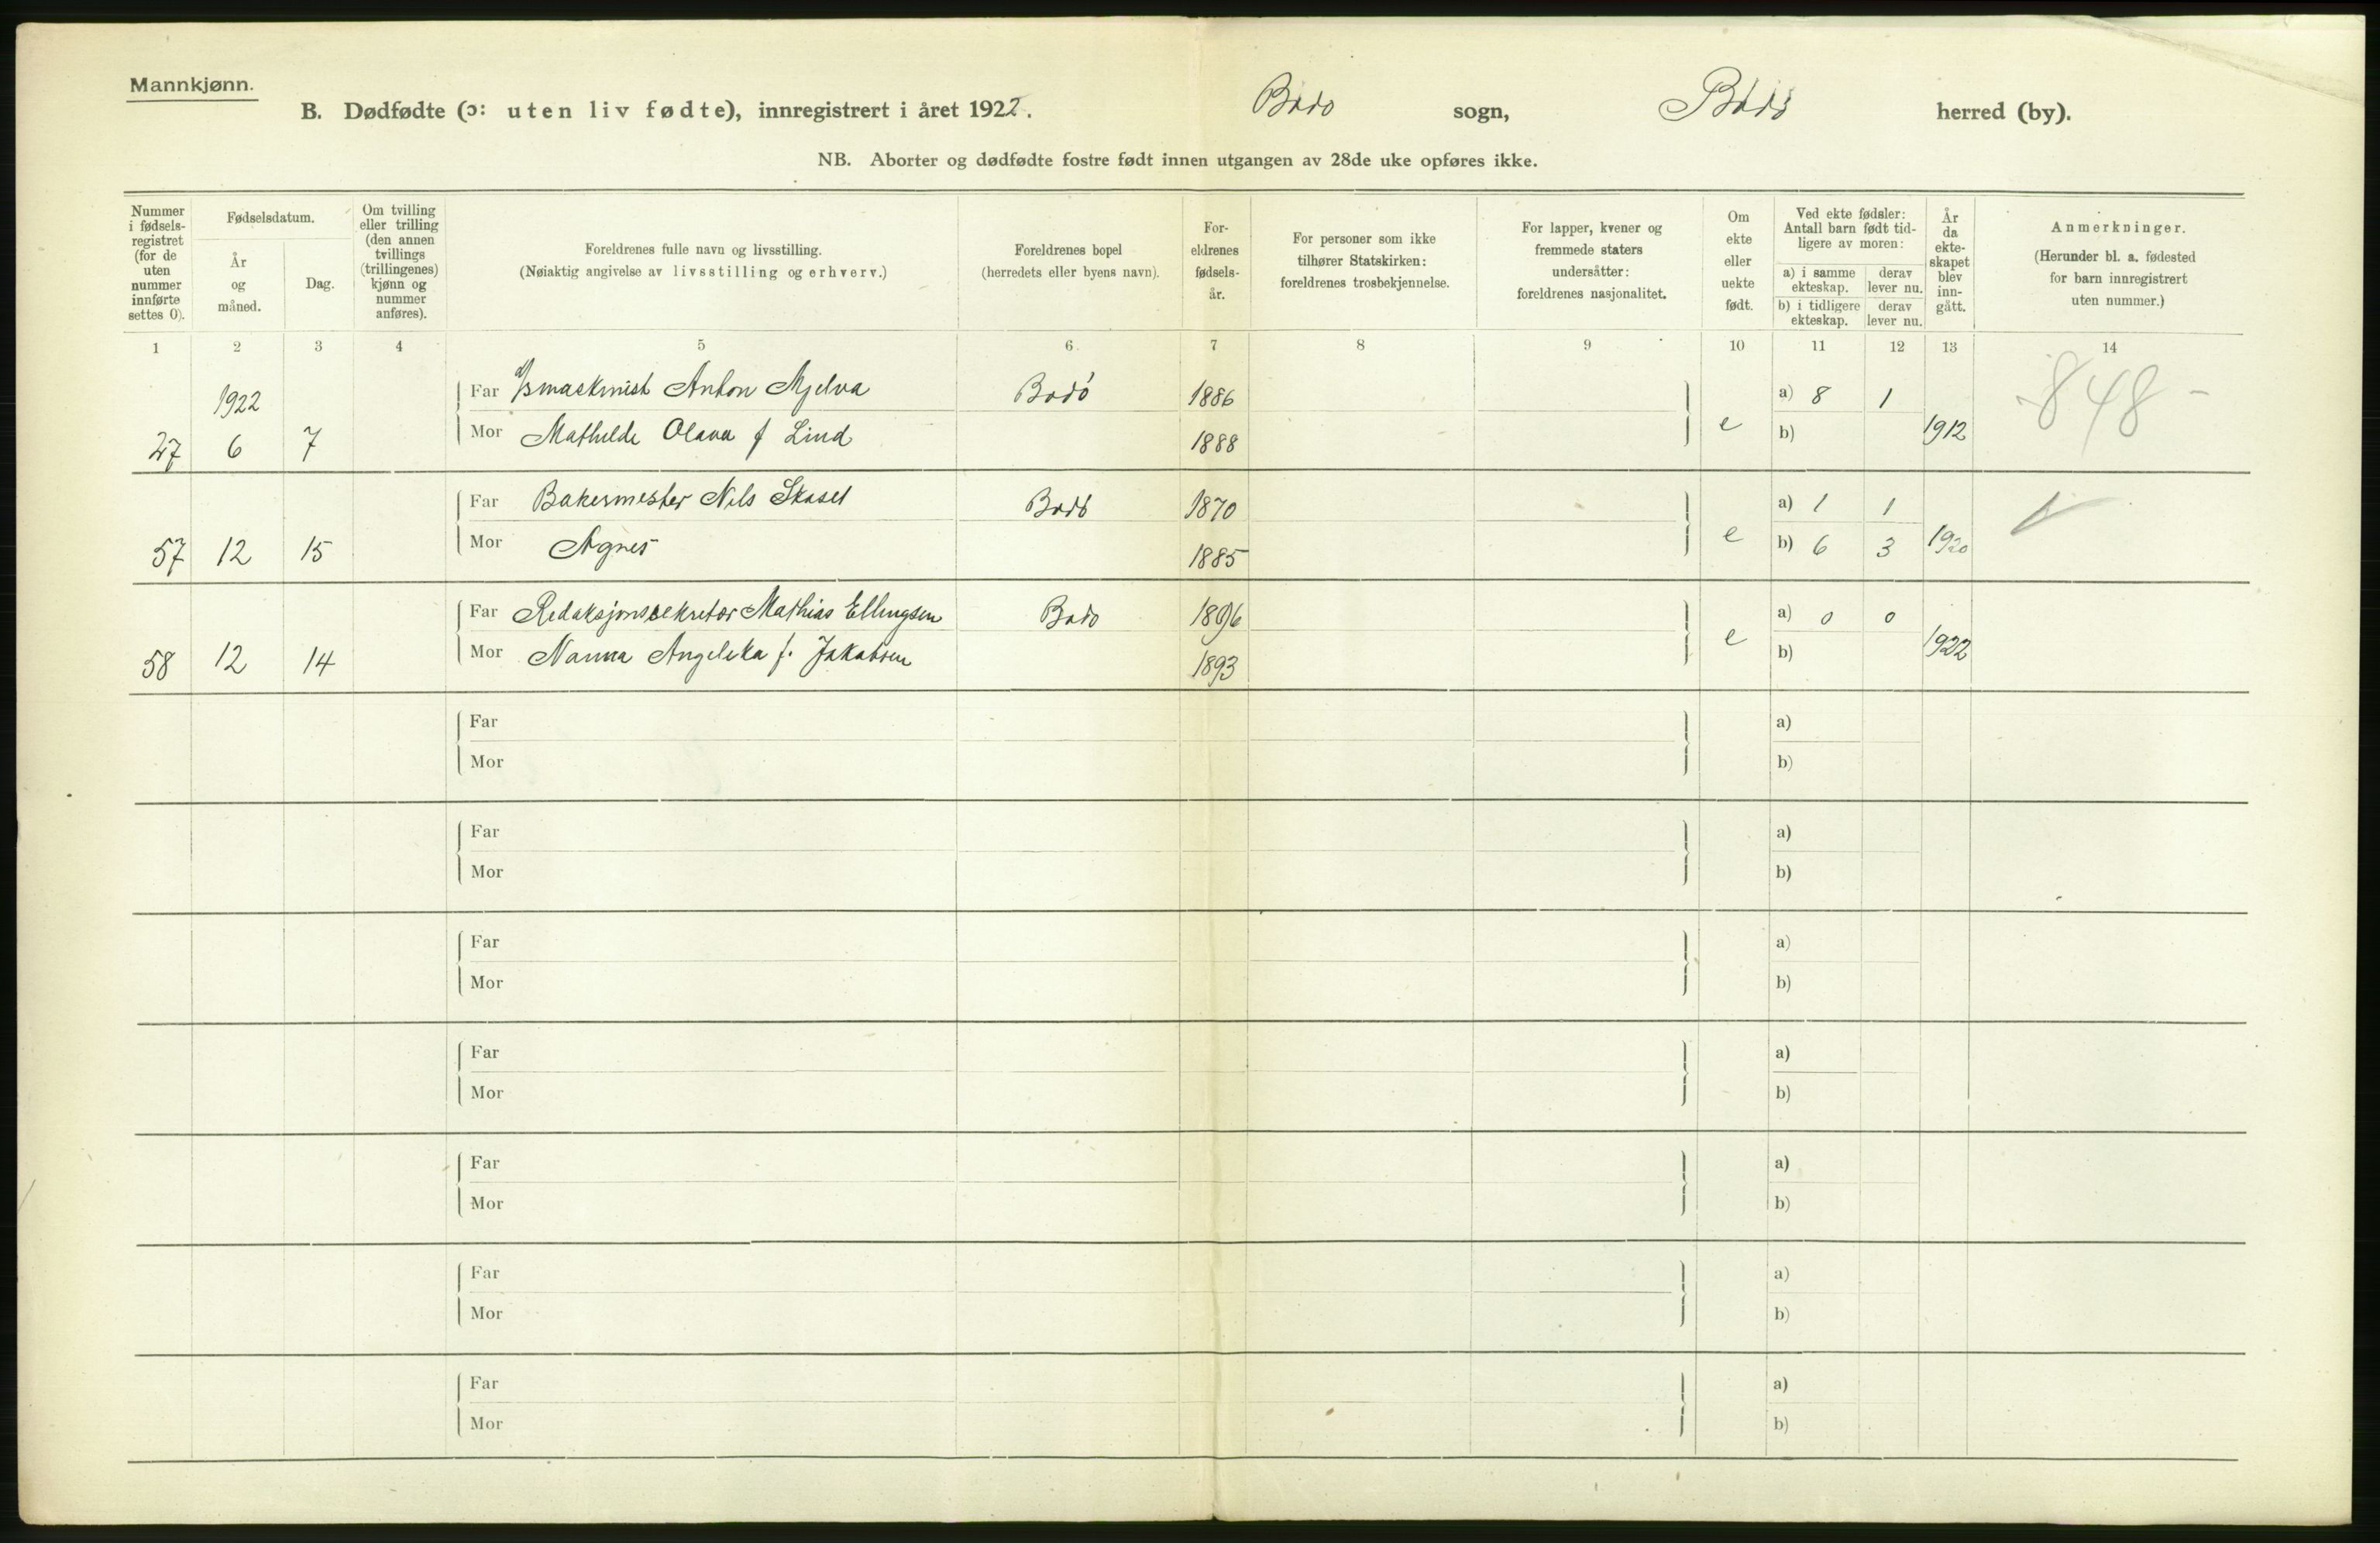 Mannkjønn.
B. Dødfødte (ɔ: uten liv fødte), innregistrert i året 1922. Bodø sogn, Bodø herred (by).
NB. Aborter og dødfødte fostre født innen utgangen av 28de uke opføres ikke.
Nummer i fødsels-registret (for de uten nummer innførte settes 0).
Fødselsdatum.
År og måned.
Dag.
Om tvilling eller trilling (den annen tvillings (trillingenes) kjønn og nummer anføres).
Foreldrenes fulle navn og livsstilling.
(Nøiaktig angivelse av livsstilling og erhverv.)
Foreldrenes bopel
(herredets eller byens navn).
For-eldrenes fødsels-år.
For personer som ikke tilhører Statskirken: foreldrenes trosbekjennelse.
For lapper, kvener og fremmede staters undersåtter: foreldrenes nasjonalitet.
Om ekte eller uekte født.
Ved ekte fødsler: Antall barn født tid-ligere av moren:
a) i samme ekteskap. derav lever nu.
b) i tidligere ekteskap. derav lever nu.
År da ekte-skapet blev inn-gått.
Anmerkninger.
(Herunder bl. a. fødested for barn innregistrert uten nummer.)
1 2 3 4 5 6 7 8 9 10 11 12 13 14
1922 Far Anton Mjelva Bodø 1886 a) 8 1 848 -
27 6 7 Mor Mathilde Olava f Lind 1888 e b) 1912
Far Bakermester Nils Skasel Bodø 1870 a) 1 1
57 12 15 Mor Agnes 1885 e b) 6 3 1920
Far Redaksjonssekretær Mathias Ellingsen Bodo 1896 a) 0 0
58 12 14 Mor Nanna Angelika f. Jakobsen 1893 e b) 1922
Far a)
Mor b)
Far a)
Mor b)
Far a)
Mor b)
Far a)
Mor b)
Far a)
Mor b)
Far a)
Mor b)
Far a)
Mor b)